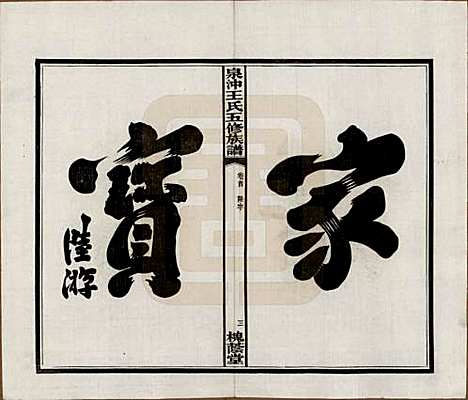 家
寶
陸游
泉沖王氏五修族譜
卷首
三
槐蔭堂